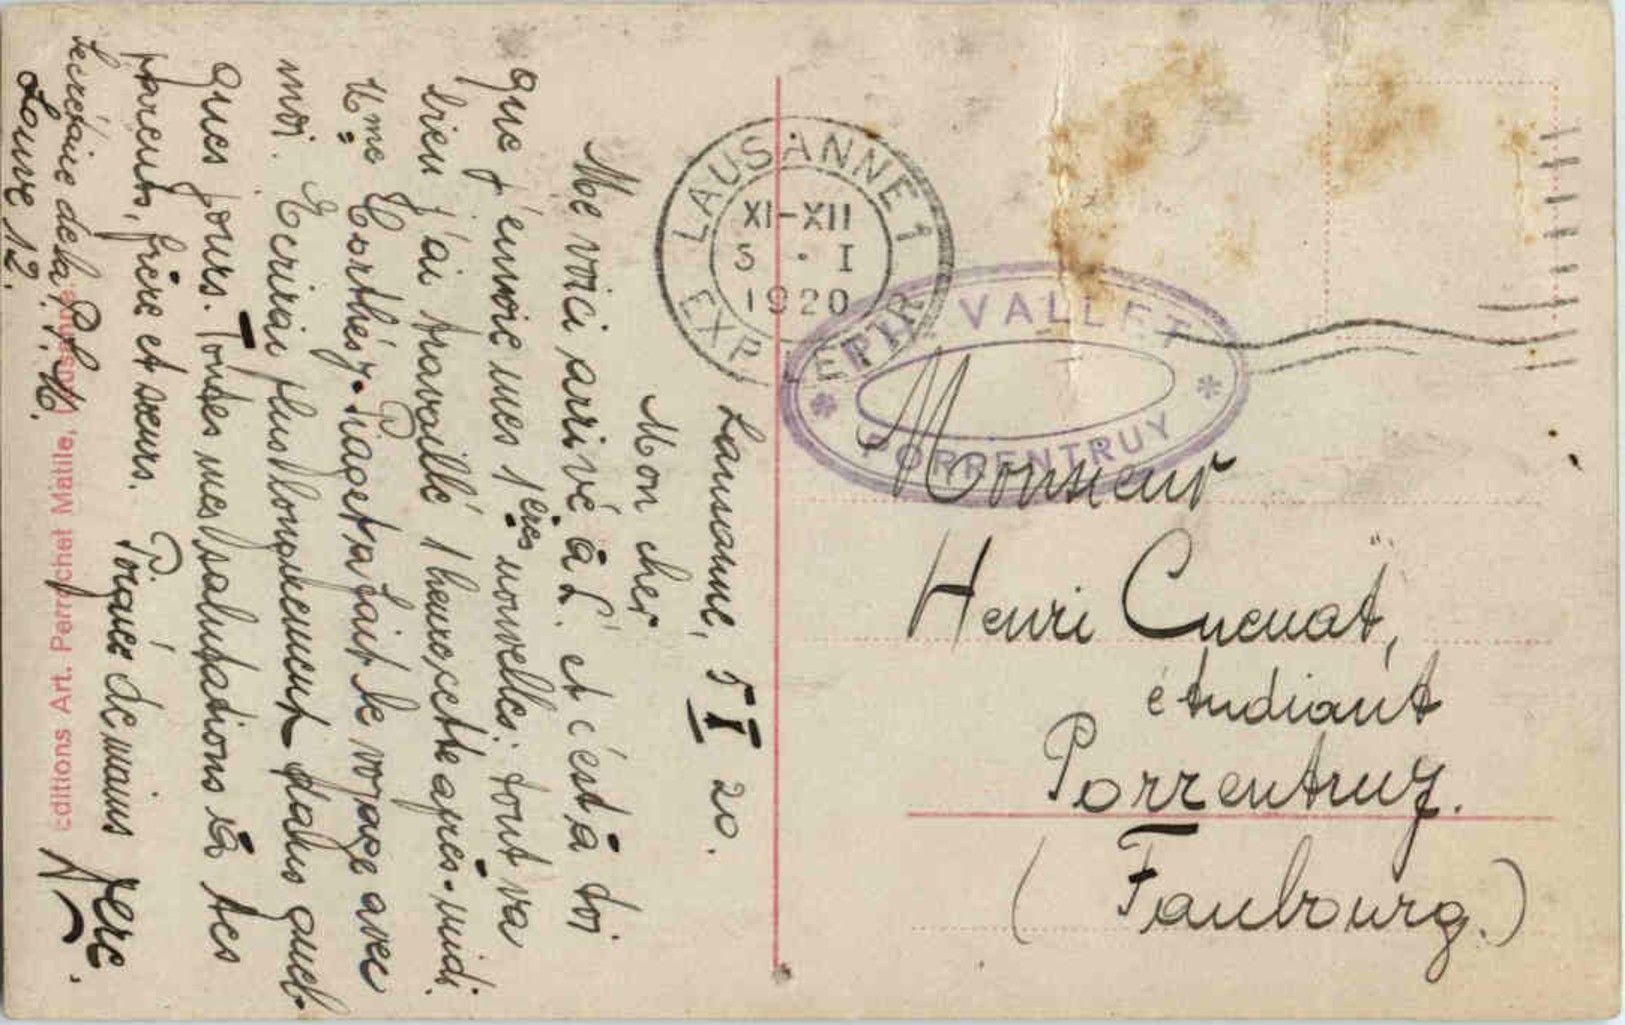 Lausanne, 5 I 20.
Mon cher
Me voici arrivé à L. et c'est à toi
que j'envoie mes 1ères nouvelles; tout va
bien j'ai travaillé 1 heure, cette après-midi.
Mme Corthésy-Piaget a fait le voyage avec
moi. Ecrirai plus longuement dans quel-
ques jours. Toutes mes salutations à tes
parents, frère et sœurs. Poignée de mains
secrétaire de la
Louve 12.
LAUSANNE 1
XI-XII
5 . I
1920
EXP. LETTR.
VALLET
* *
PORRENTRUY
Monsieur
Henri Cuenat,
étudiant
Porrentruy.
(Faubourg.)
Editions Art. Perrochet Matile, Lausanne